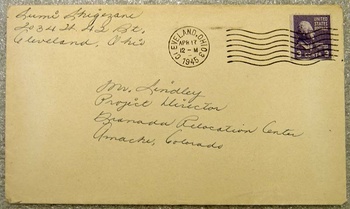 Lumi Shigezane
2034 W. 42 St.
Cleveland, Ohio
CLEVELAND, OHIO
APR 17
12-M
1945
UNITED STATES
3 CENTS 3
Mr. Lindley
Project Director
Granada Relocation Center
Amache, Colorado